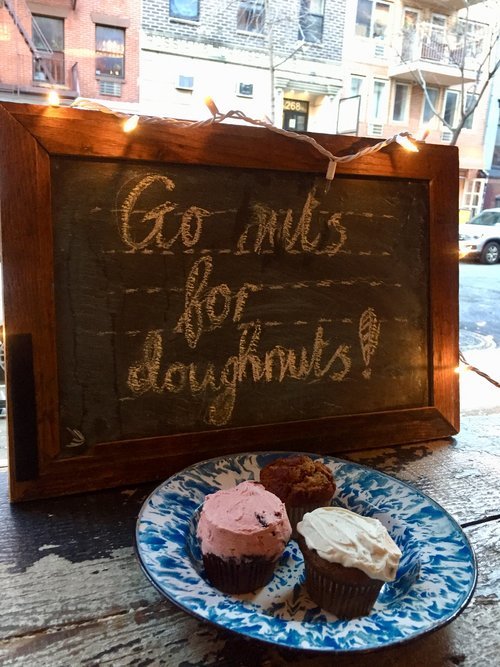 268
Go nuts
for
doughnuts!